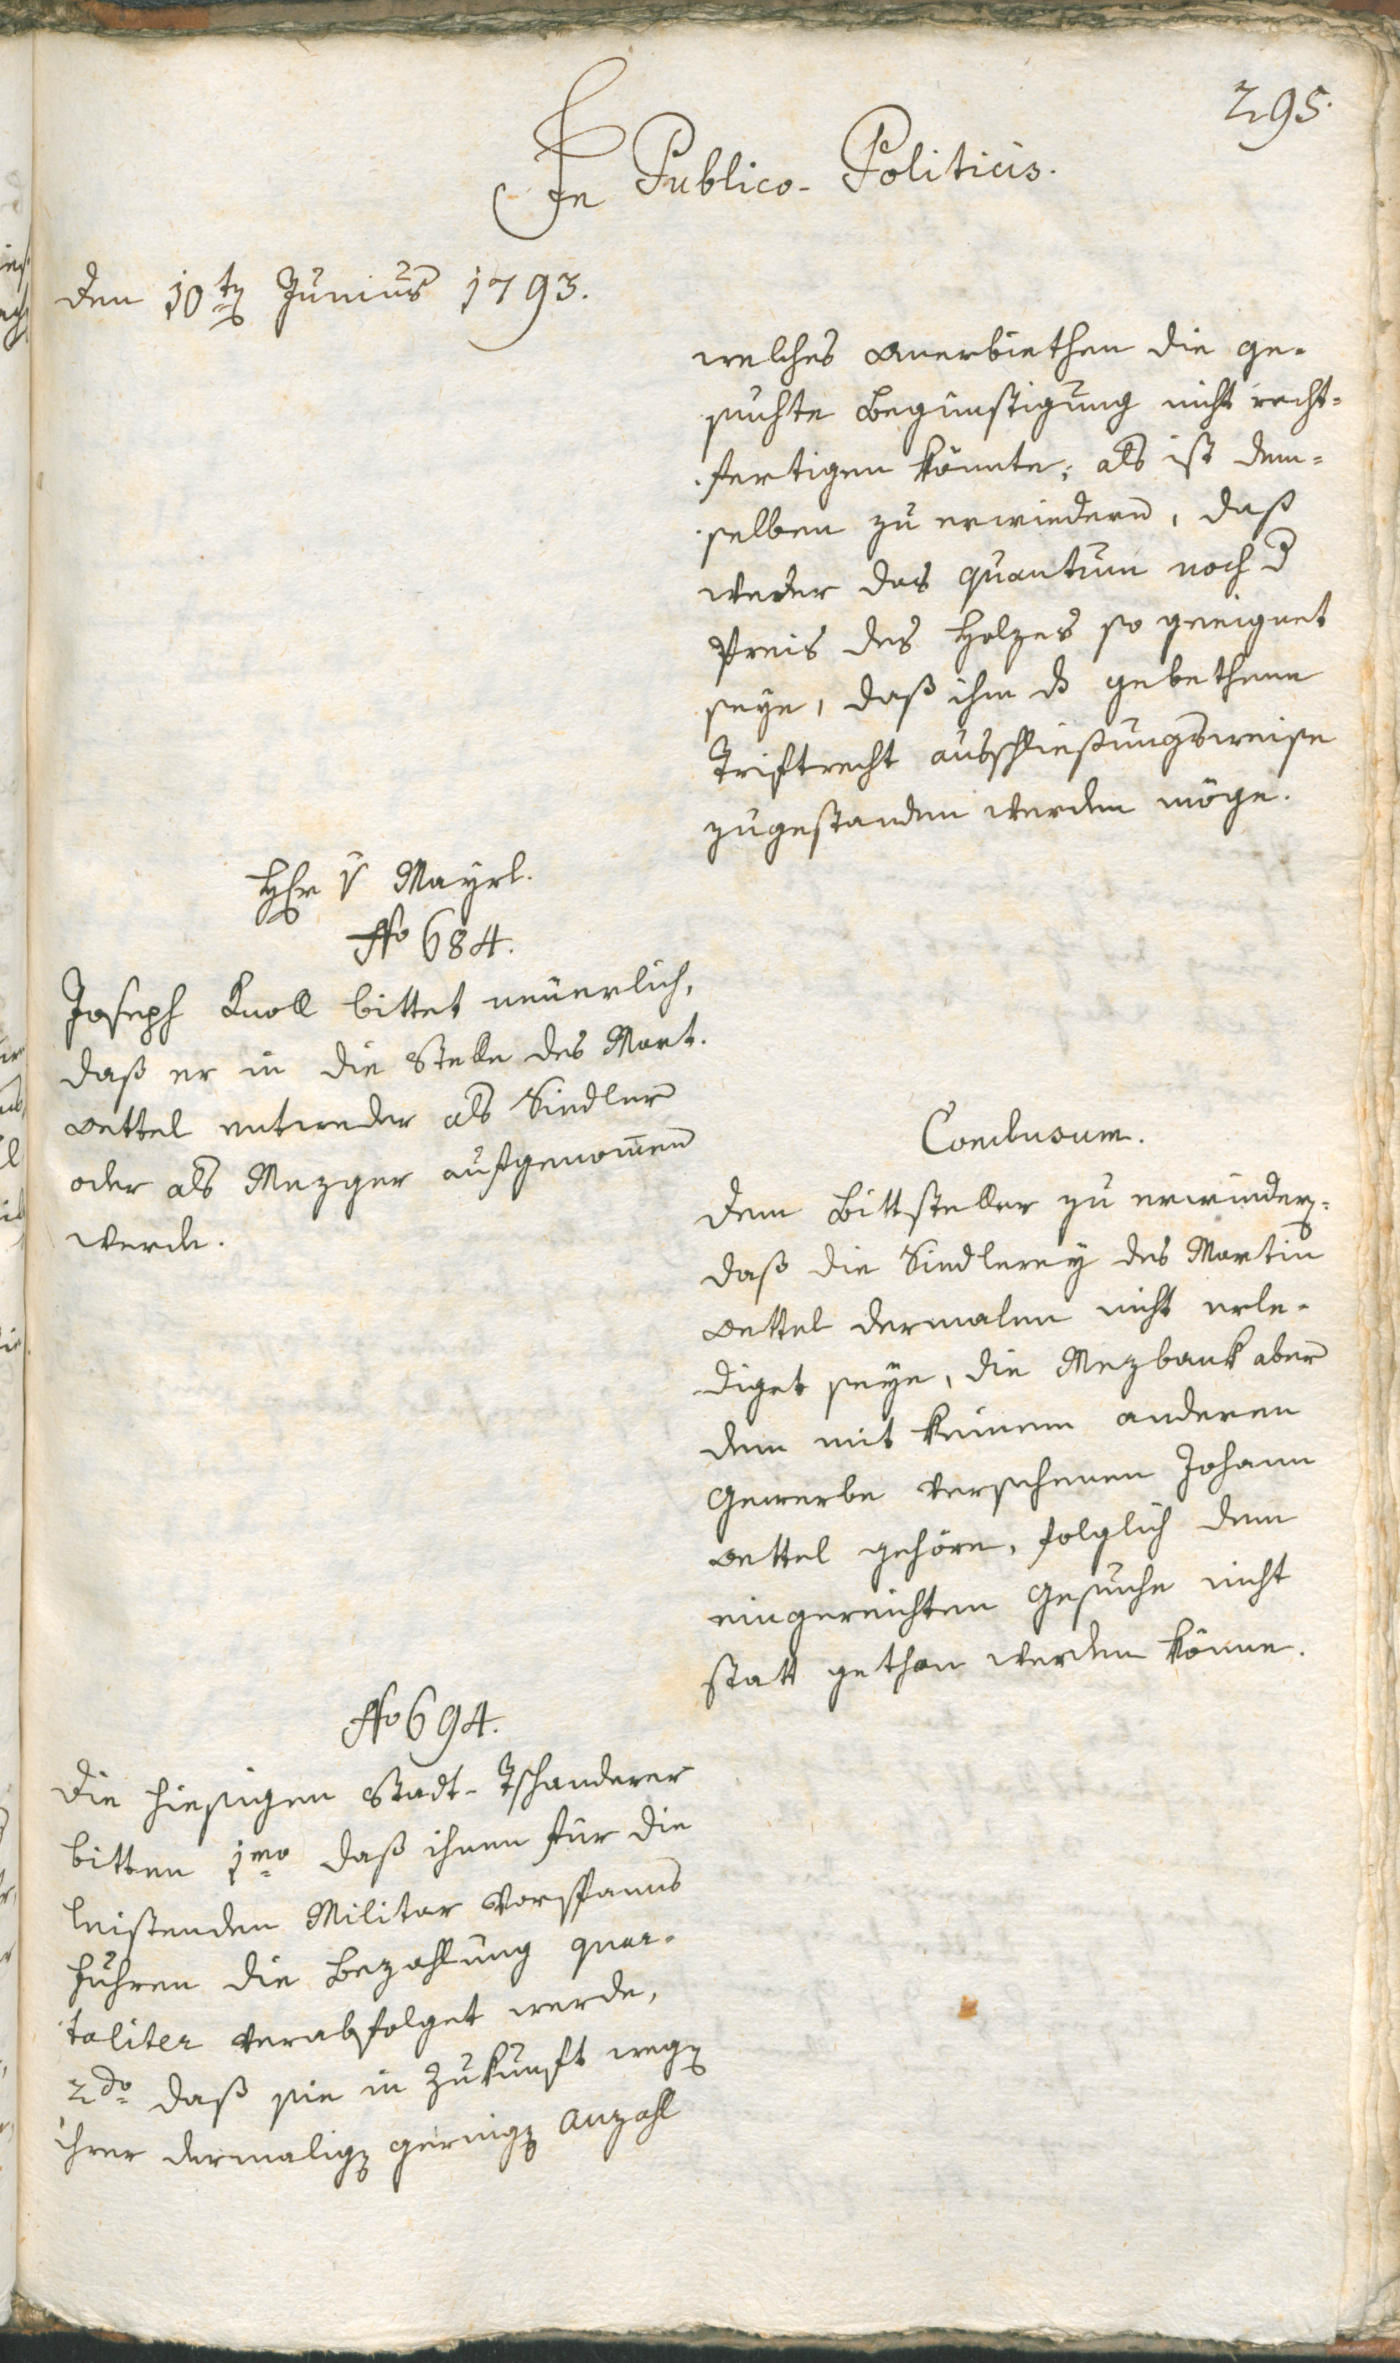 295.
In Publico-Politicis.
den 10ten Junius 1793.
welches Anerbiethen die ge-
suchte Begünstigung nicht recht-
fertigen könnte; als ist dem-
selben zu erwiedern, daß
weder das quantum noch d
Preis des Holzes so geeignet
seye, daß ihm ds gebethene
Triftrecht ausschließungsweise
zugestanden werden möge.
Hr v Mayrl.
No 684.
Joseph Knoll bittet neuerlich,
daß er in die Stelle des Mart.
Oettel entweder als Siedler
oder als Mezger aufgenomen
werde.
Conclusum.
Dem Bittsteller zu erwiedern:
daß die Siedlerey des Martin
Oettel dermalen nicht erle-
diget seye, die Mezbank aber
dem mit keinem anderen
Gewerbe versehenen Johann
Oettel gehöre, folglich dem
eingereichten Gesuche nicht
statt gethan werden könne.
No 694.
Die hiesigen Stadt-Tschanderer
bitten 1mo daß ihnen für die
leistenden Militar Vorspanns
fuhren die Bezahlung quar-
taliter verabfolget werde,
2do daß sie in Zukunft wegen
ihrer dermaligen geringen Anzahl